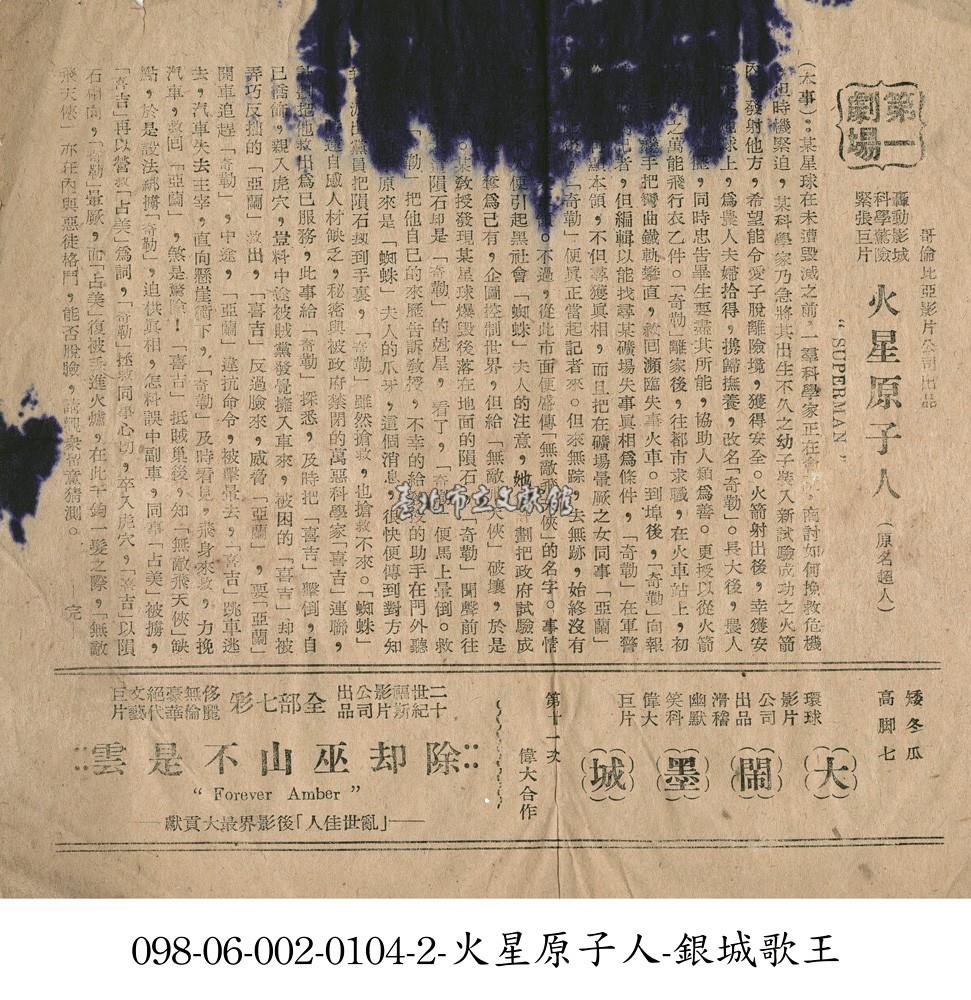 第一劇場
哥倫比亞影片公司出品
轟動影城
科學驚險
緊張巨片
火星原子人（原名超人）
“SUPERMAN”
（本事）：某星球在未遭毀滅之前，一羣科學家正在會，商討如何挽救危機
也時機緊迫，某科學家乃急將其出生不久之幼子裝入新試驗成功之火箭
發射他方，希望能令愛子脫離險境，獲得安全。火箭射出後，幸獲安
球上，為農人夫婦拾得，携歸撫養，改名「奇勒」。長大後，農人
，同時忠告畢生要盡其所能，協助人類為善。更授以從火箭
之萬能飛行衣乙件。「奇勒」離家後，往都市求職，在火車站上，初
手把彎曲鐵軌攀直，救回瀕臨失事火車。到埠後，「奇勒」向報
記者，但編輯以能找尋某礦場失事真相為條件，「奇勒」在軍警
本領，不但獲真相，而且把在礦場暈厥之女同事「亞蘭」
，「奇勒」便真正當起記者來。但來無踪，去無跡，始終沒有
。不過，從此市面便盛傳「無敵飛天俠」的名字。事情
便引起黑社會「蜘蛛」夫人的注意，她劃把政府試驗成
奪為己有，企圖控制世界，但給「無敵天俠」破壞，於是
某教授發現某星球爆毀後落在地面的隕石「奇勒」聞聲前往
隕石却是「奇勒」的尅星，看了，「奇便馬上暈倒。救
「勒」把他自己的來歷告訴教授，不幸的給教授的助手在門外聽
原來是「蜘蛛」夫人的爪牙，這個消息，很快便傳到對方知
派出黨員把隕石刼到手裏，「奇勒」雖然搶救，也搶救不來。「蜘蛛」
自感人材缺乏，秘密與被政府禁閉的萬惡科學家「喜吉」連聯，
把他救出為己服務，此事給「奇勒」探悉，及時把「喜吉」擊倒，自
己喬飾，親入虎穴，豈料中途被賊黨發覺擁入車來，被困的「喜吉」却被
弄巧反拙的「亞蘭」救出，「喜吉」反過臉來，威脅「亞蘭」，要「亞蘭」
開車追趕「奇勒」，中途，「亞蘭」違抗命令，被擊暈去，「喜吉」跳車逃
去，汽車失去主宰，直向懸崖衝下，「奇勒」及時看見，飛身來救，力挽
汽車，救回「亞蘭」，煞是驚險！「喜吉」抵賊巢後，知「無敵飛天俠」缺
點，於是設法綁擄「奇勒」，迫供真相，怎料誤中副車，同事「占美」被擄，
「喜吉」再以營救「占美」為詞，「奇勒」拯救同事心切，卒入虎穴，「喜吉」以隕
石相向，「奇勒」暈厥，而「占美」復被送進火爐，在此千鈞一髮之際，「無敵
飛天俠」亦在內與惡徒格鬥，能否脫險，請觀衆暫猜測。 —完—
臺北市立文獻館
矮冬瓜
高脚七
大鬧墨城
環球影片公司出品
滑稽幽默笑科偉大巨片
第十二次偉大合作
二十世紀福斯影片公司出品
全部七彩
侈靡無倫
豪華絕代
文藝巨片
除却巫山不是雲
“ Forever Amber ”
—「亂世佳人」後影界最大貢獻—
098-06-002-0104-2-火星原子人-銀城歌王